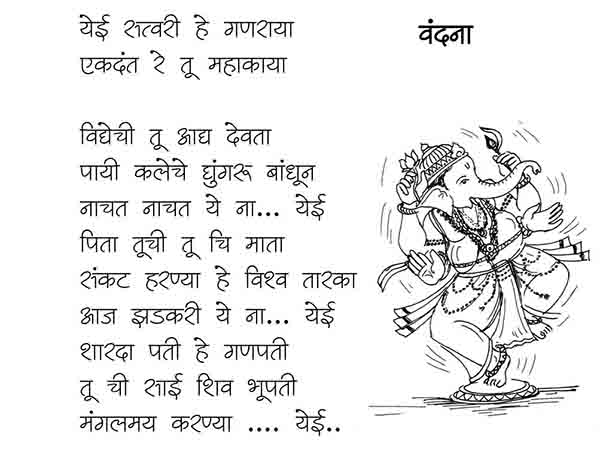 वंदना
येई सत्वरी हे गणराया
एकदंत रे तू महाकाया
विद्येची तू आद्य देवता
पायी कलेचे घुंगरू बांधून
नाचत नाचत ये ना... येई
पिता तूची तू चि माता
संकट हरण्या हे विश्व तारका
आज झडकरी ये ना... येई
शारदा पती हे गणपती
तू ची साई शिव भूपती
मंगलमय करण्या .... येई..